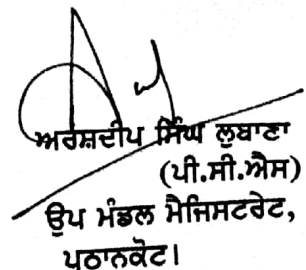 ਅਰਸ਼ਦੀਪ ਸਿੰਘ ਲੁਬਾਣਾ
(ਪੀ.ਸੀ.ਐਸ)
ਉਪ ਮੰਡਲ ਮੈਜਿਸਟਰੇਟ,
ਪਠਾਨਕੋਟ।